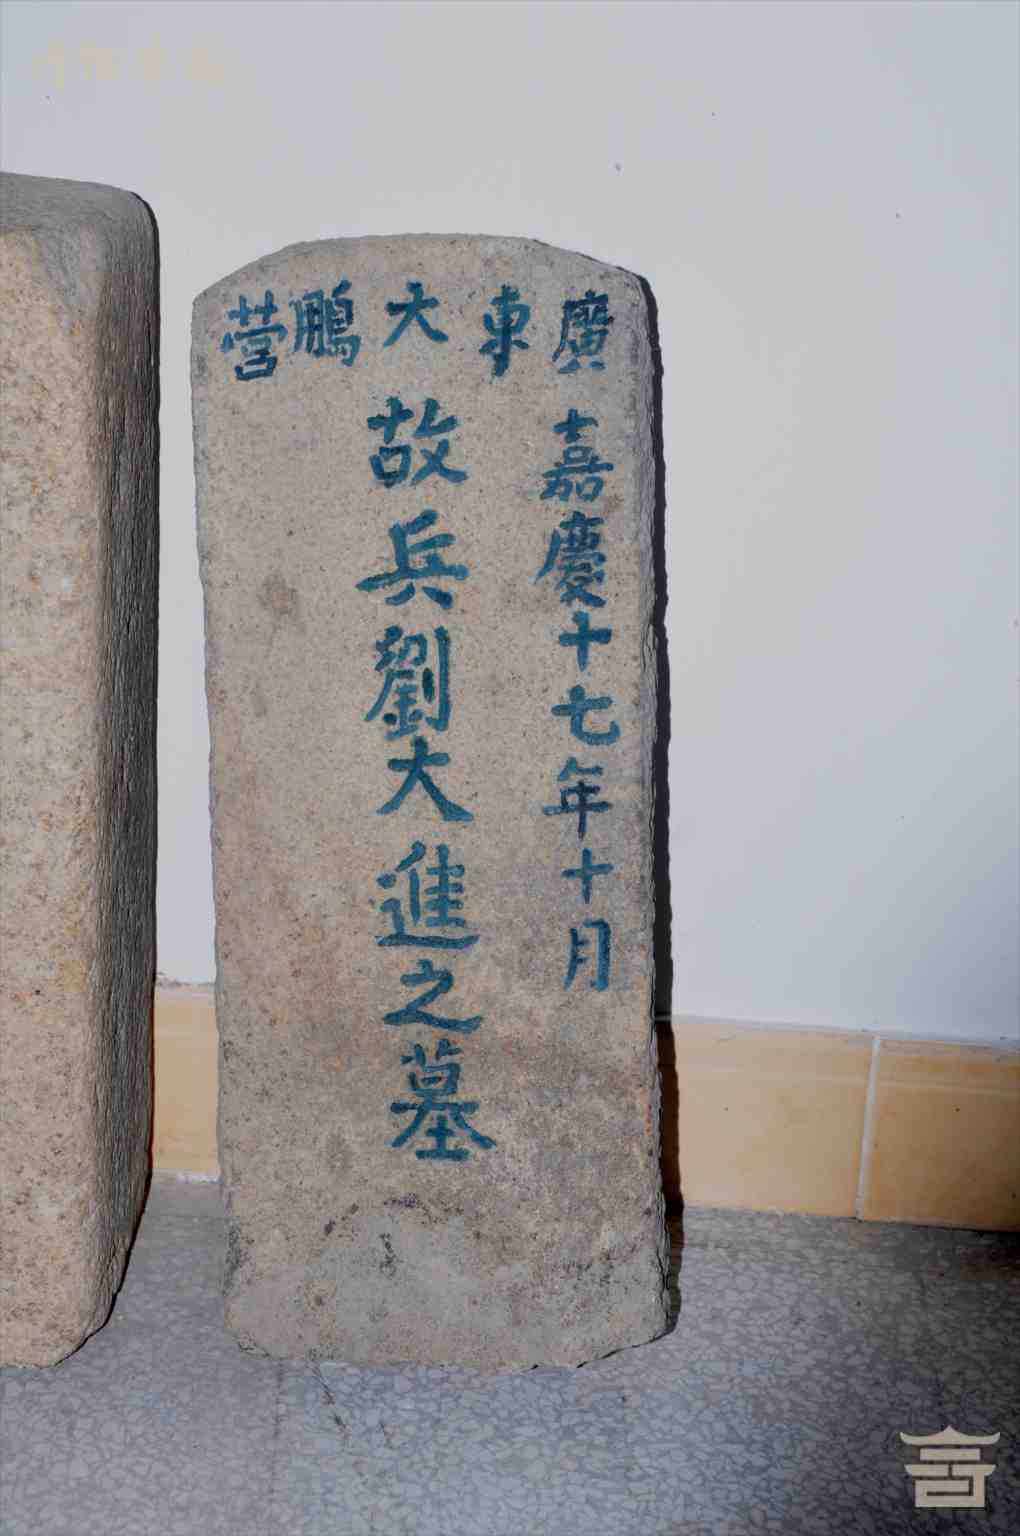 廣東大鵬營
嘉慶十七年十月
故兵劉大進之墓